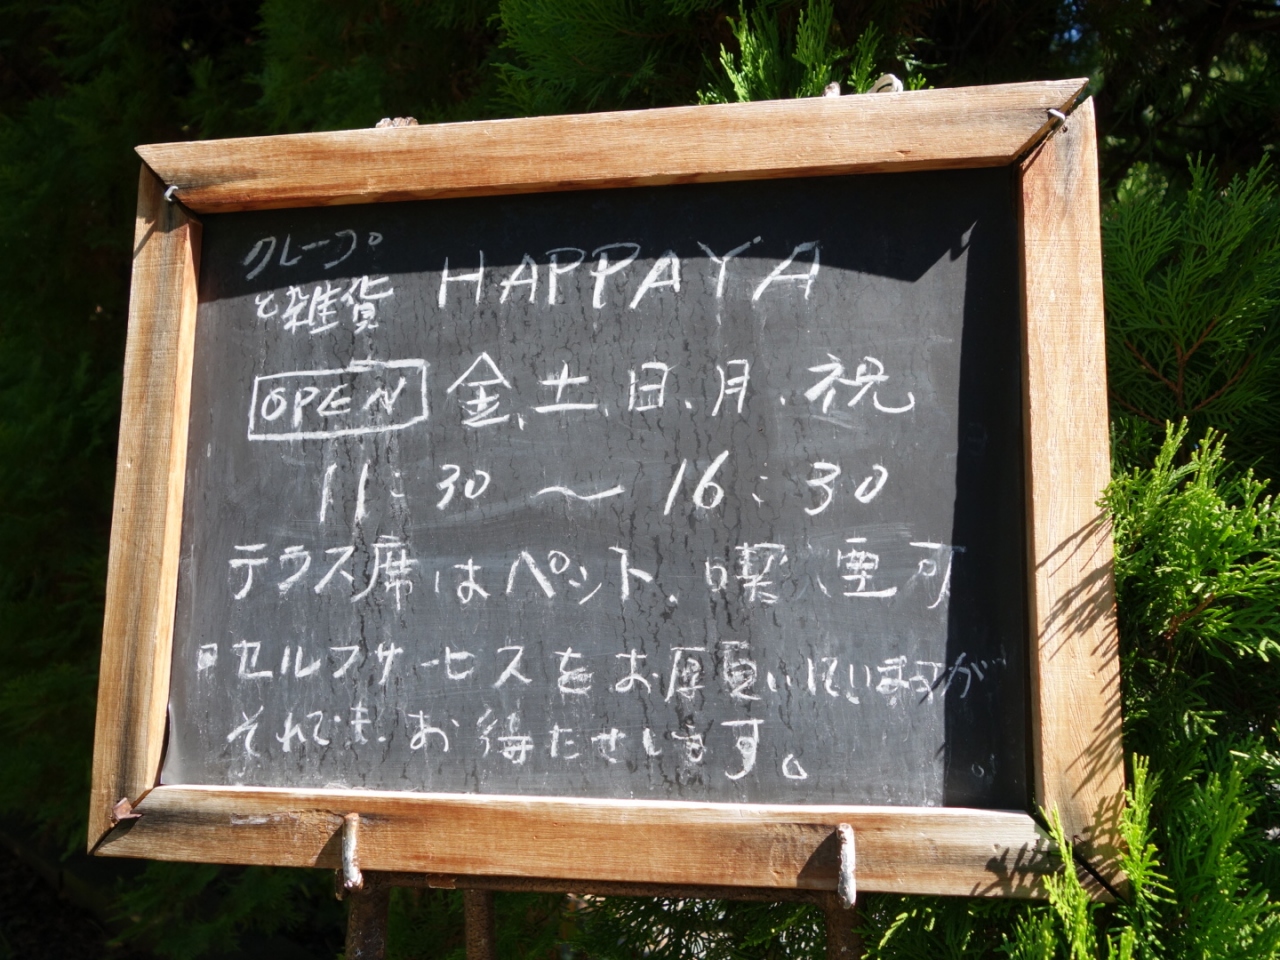 クレープ
と雑貨 HAPPAYA
OPEN 金、土、日、月、祝
11:30～16:30
テラス席はペット、喫煙可
セルフサービスをお願いしていますが
それでもお待たせします。